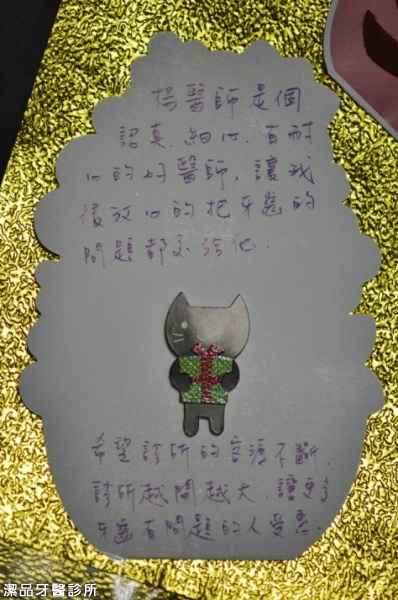 楊醫師是個
認真.細心.有耐
心的好醫師.讓我
後放心的把牙齒的
問題都交給他.
希望診所的客源不斷.
診所越開越大.讓更多
牙齒有問題的人受惠.
潔品牙醫診所